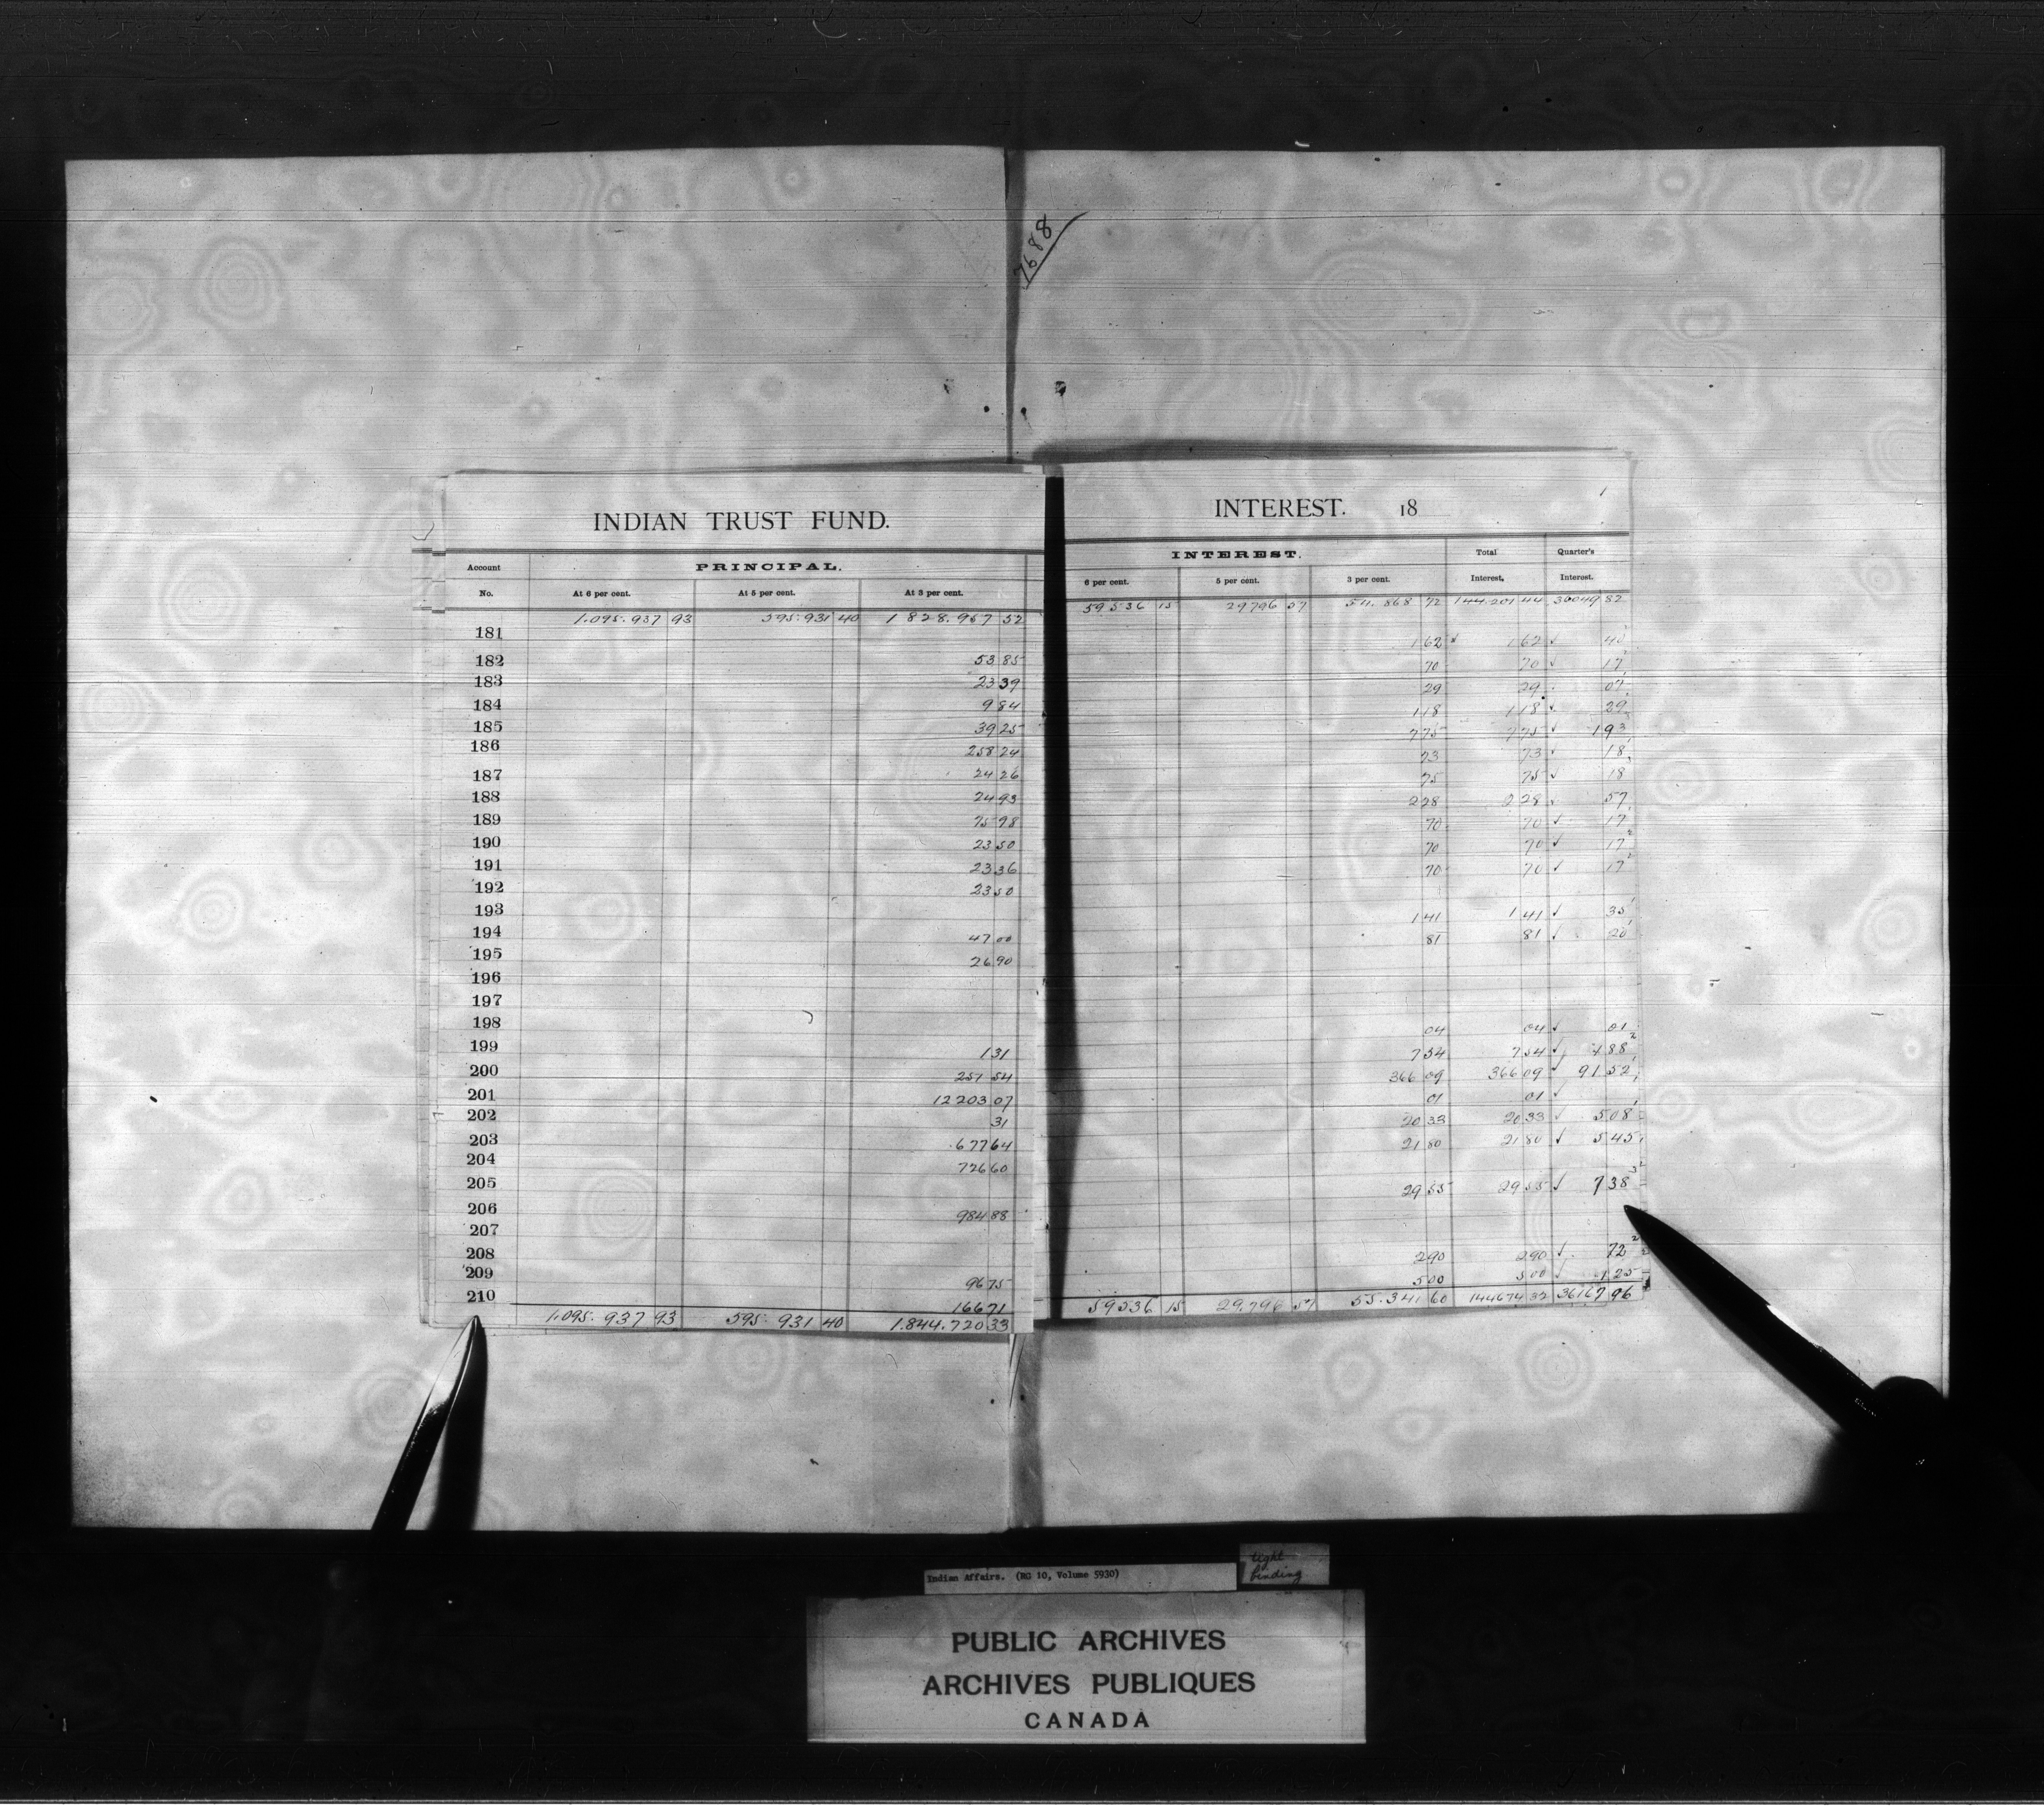 7688
INDIAN TRUST FUND.
Account No. PRINCIPAL.
At 6 per cent. At 5 per cent. At 3 per cent.
1.095.937 93 595.931 40 1828.957 52
181
182 53 85
183 23 39
184 9 84
185 39 25
186 258 24
187 24 26
188 24 93
189 75 98
190 23 50
191 23 36
192 23 50
193
194 47 00
195 26 90
196
197
198
199 1 31
200 251 54
201 12203 07
202 31
203 677 64
204 726 60
205
206 984 88
207
208
209 96 75
210 166 71
1.095.937 93 595.931 40 1.844.720 33
INTEREST. 18
INTEREST. Total Interest. Quarter's Interest.
6 per cent. 5 per cent. 3 per cent.
59536 15 29796 57 54.868 72 144.201 44 36049 82
1 62 1 62 ✓ 40
70 70 ✓ 17
29 29 07
1 18 1 18 ✓ 29
7 75 7 75 ✓ 1 93
73 73 ✓ 18
75 75 ✓ 18
2 28 2 28 ✓ 57
70 70 ✓ 17
70 70 ✓ 17
70 70 ✓ 17
1 41 1 41 ✓ 35
81 81 ✓ 20
04 04 ✓ 01
7 54 7 54 ✓ 1 88
366 09 366 09 ✓ 91 52
01 01 ✓
20 33 20 33 ✓ 5 08
21 80 21 80 ✓ 5 45
29 55 29 55 ✓ 7 38
2 90 2 90 ✓ 72
5 00 5 00 ✓ 1 25
59536 15 29.796 57 55.341 60 144674 32 36167 96
Indian Affairs. (RG 10, Volume 5930)
tight
binding
PUBLIC ARCHIVES
ARCHIVES PUBLIQUES
CANADA